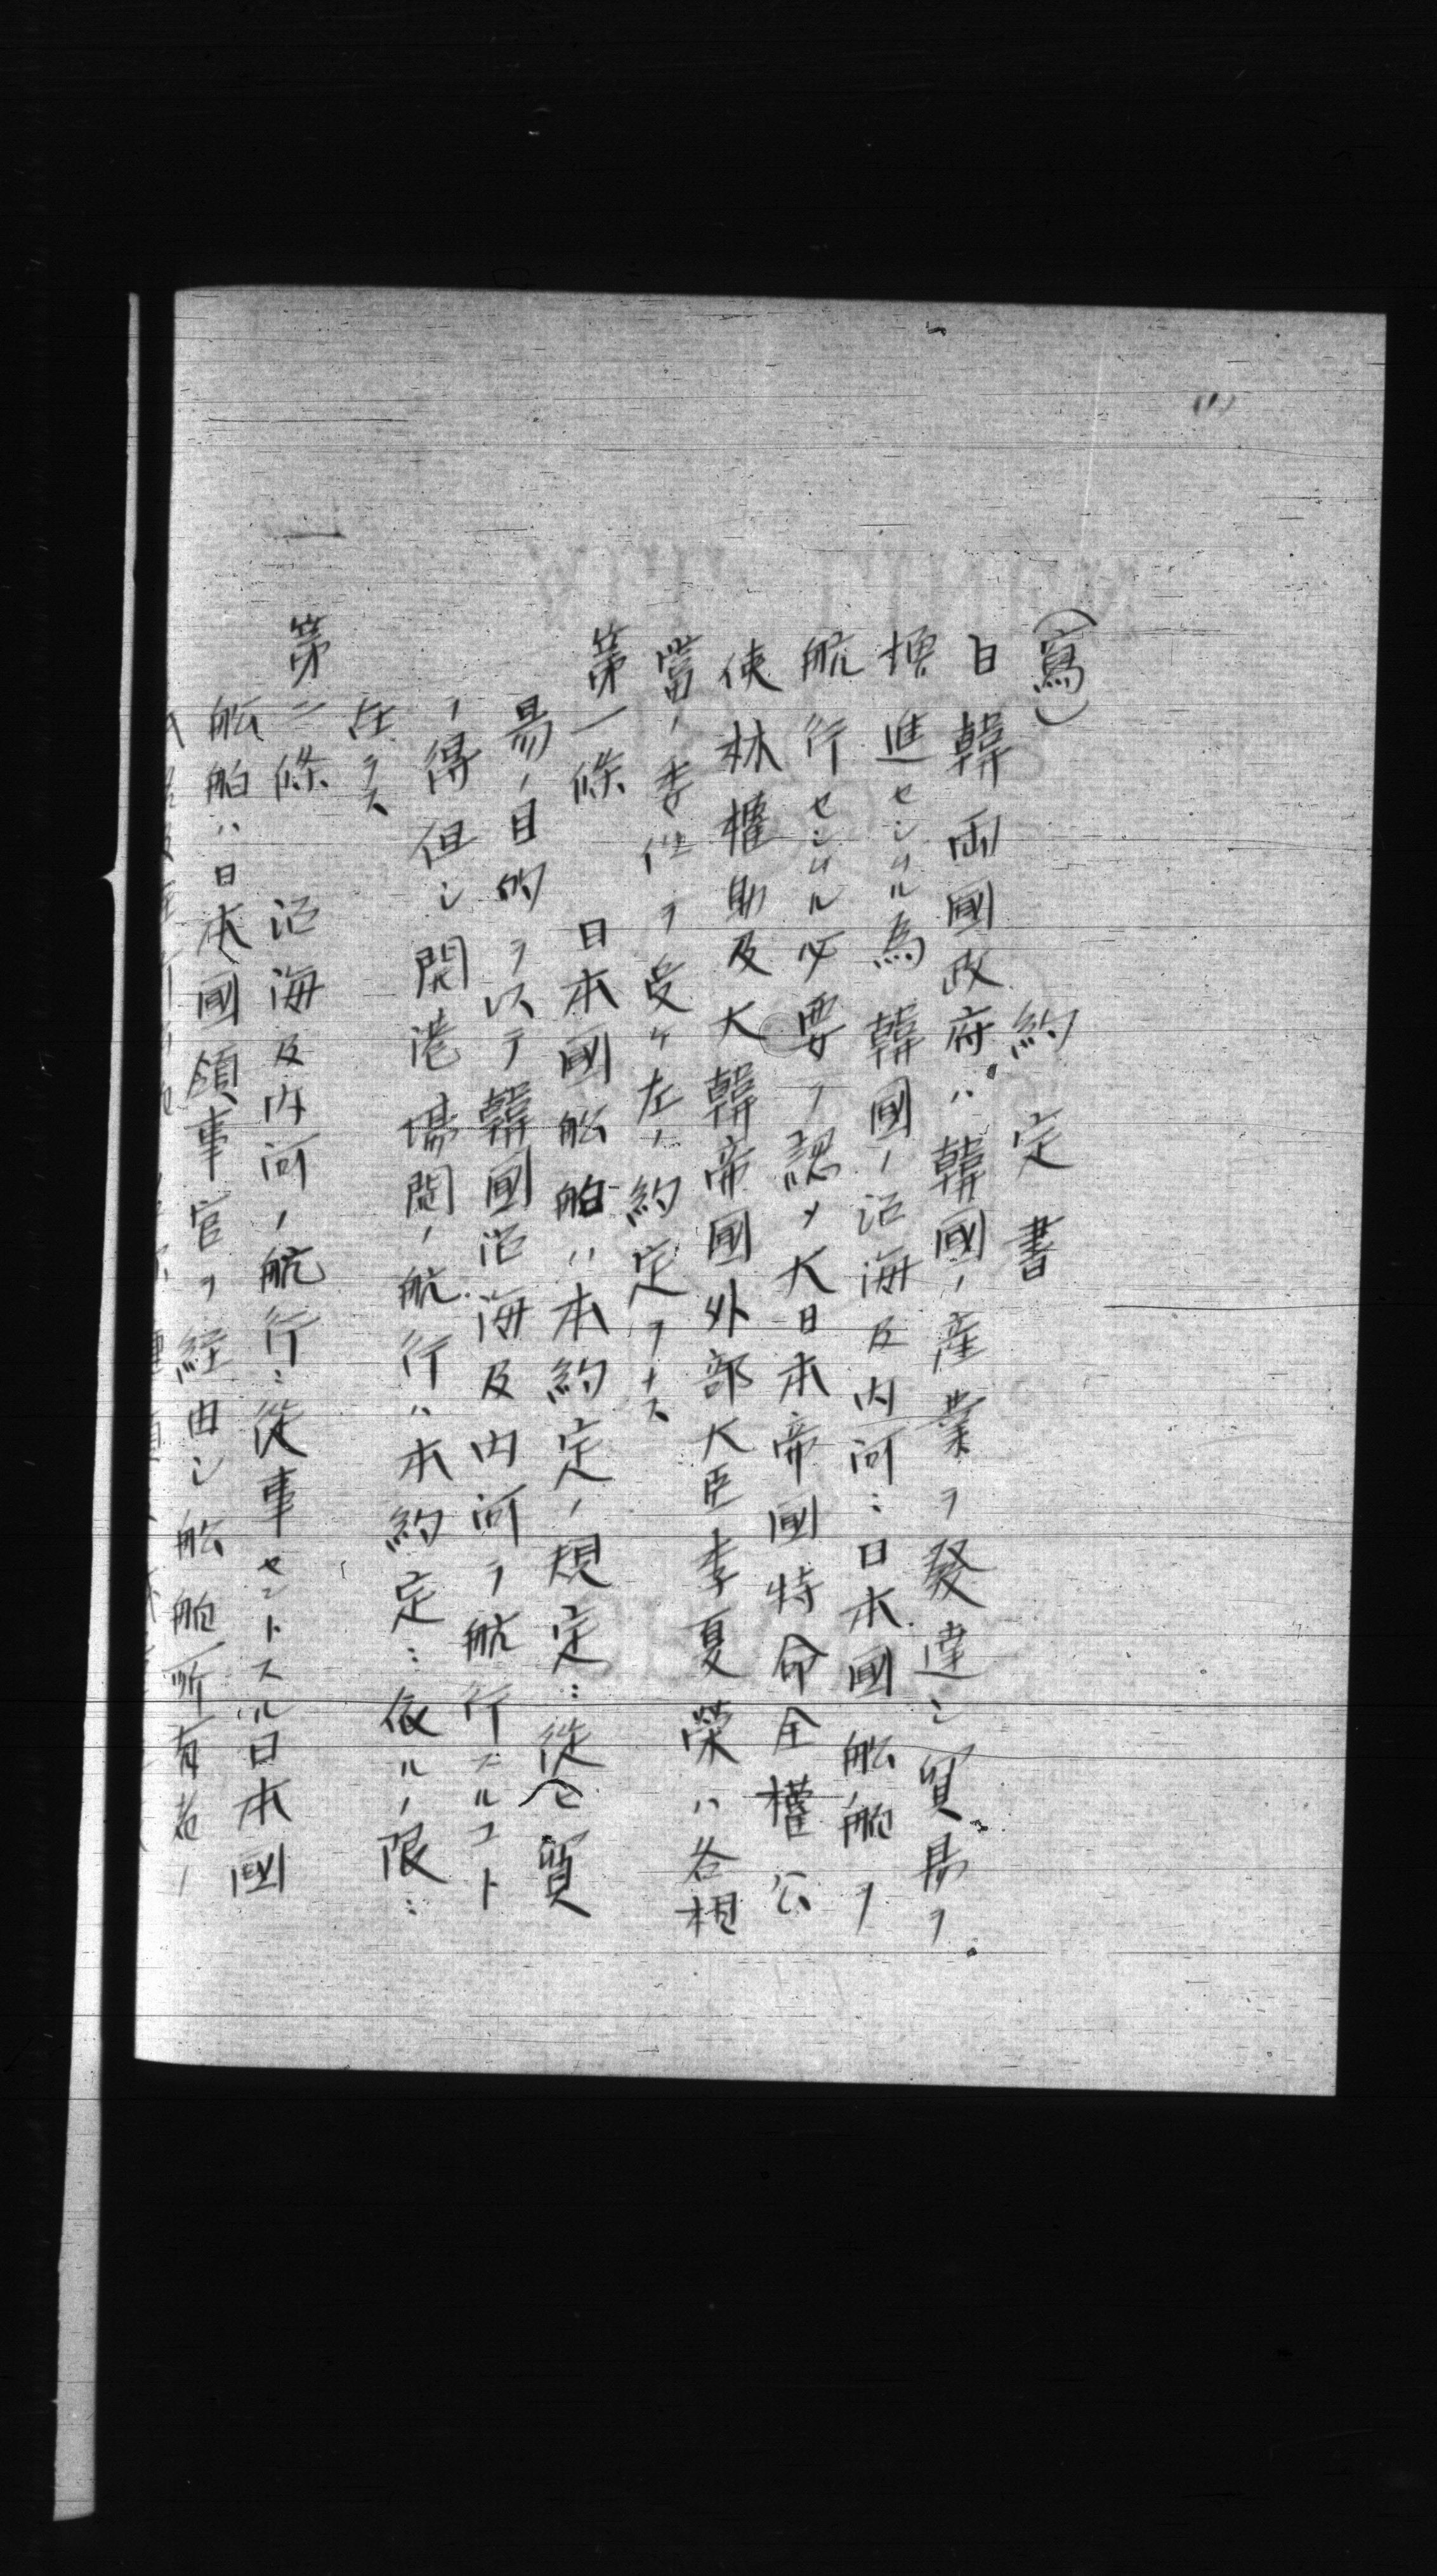 (寫)
約定書
日韓両國政府ハ韓國ノ産業ヲ發達シ貿易ヲ
増進セシムル為韓國ノ沿海及内河ニ日本國船舶ヲ
航行セシムル必要ヲ認メ大日本帝國特命全權公
使林權助及大韓帝國外部大臣李夏榮ハ各相
當ノ委任ヲ受ケ左ノ約定ヲナス
第一條 日本國船舶ハ本約定ノ規定ニ従ヒ貿
易ノ目的ヲ以テ韓國沿海及内河ヲ航行スルコト
ヲ得但シ開港場間ノ航行ハ本約定ニ依ルノ限ニ
在ラス
第二條 沿海及内河ノ航行ニ従事セントスル日本國
船舶ハ日本國領事官ヲ経由シ船舶所有者ノ